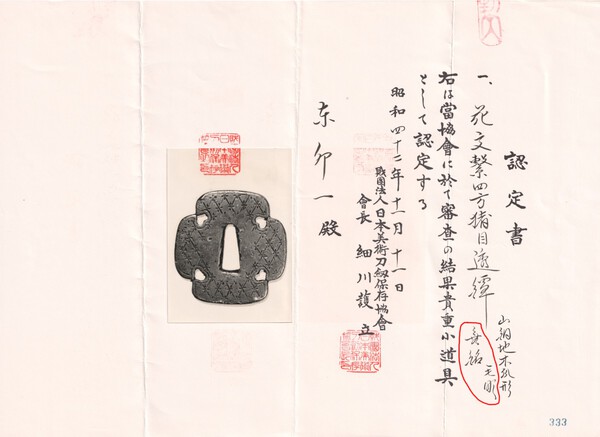 認定書
一、花文繋四方猪目透鐔
山銅地木瓜形
毛彫
無銘
右は當協會に於て審査の結果貴重小道具
として認定する
昭和四十二年十一月十一日
財団法人日本美術刀剱保存協會
會長 細川護立
東卯一殿
333